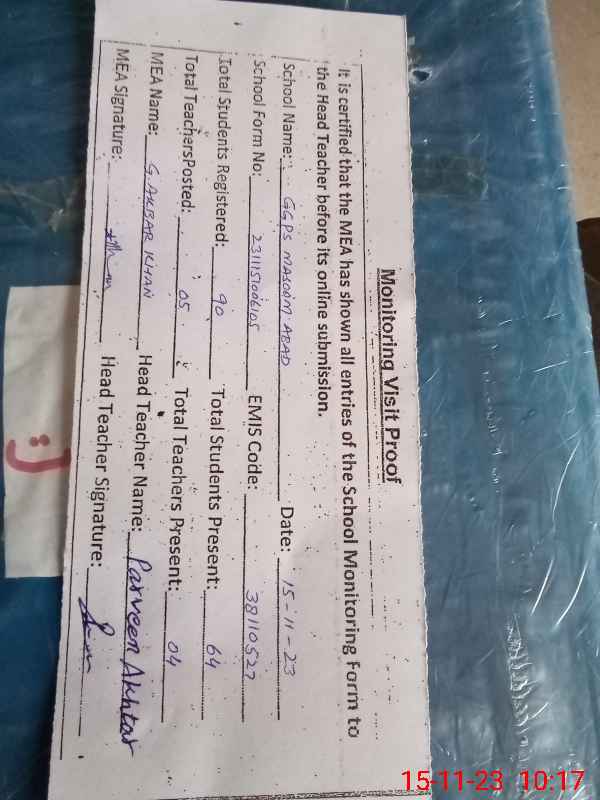 Monitoring Visit Proof
It is certified that the MEA has shown all entries of the School Monitoring Form to
the Head Teacher before its online submission.
School Name: GGPS MASOOM ABAD Date: 15-11-23
School Form No: 231115006105 EMIS Code: 38110527
Total Students Registered: 90 Total Students Present: 64
Total Teachers Posted: 05 Total Teachers Present: 04
MEA Name: G. AKBAR KHAN Head Teacher Name: Parveen Akhtar
MEA Signature: Head Teacher Signature:
15-11-23 10:17